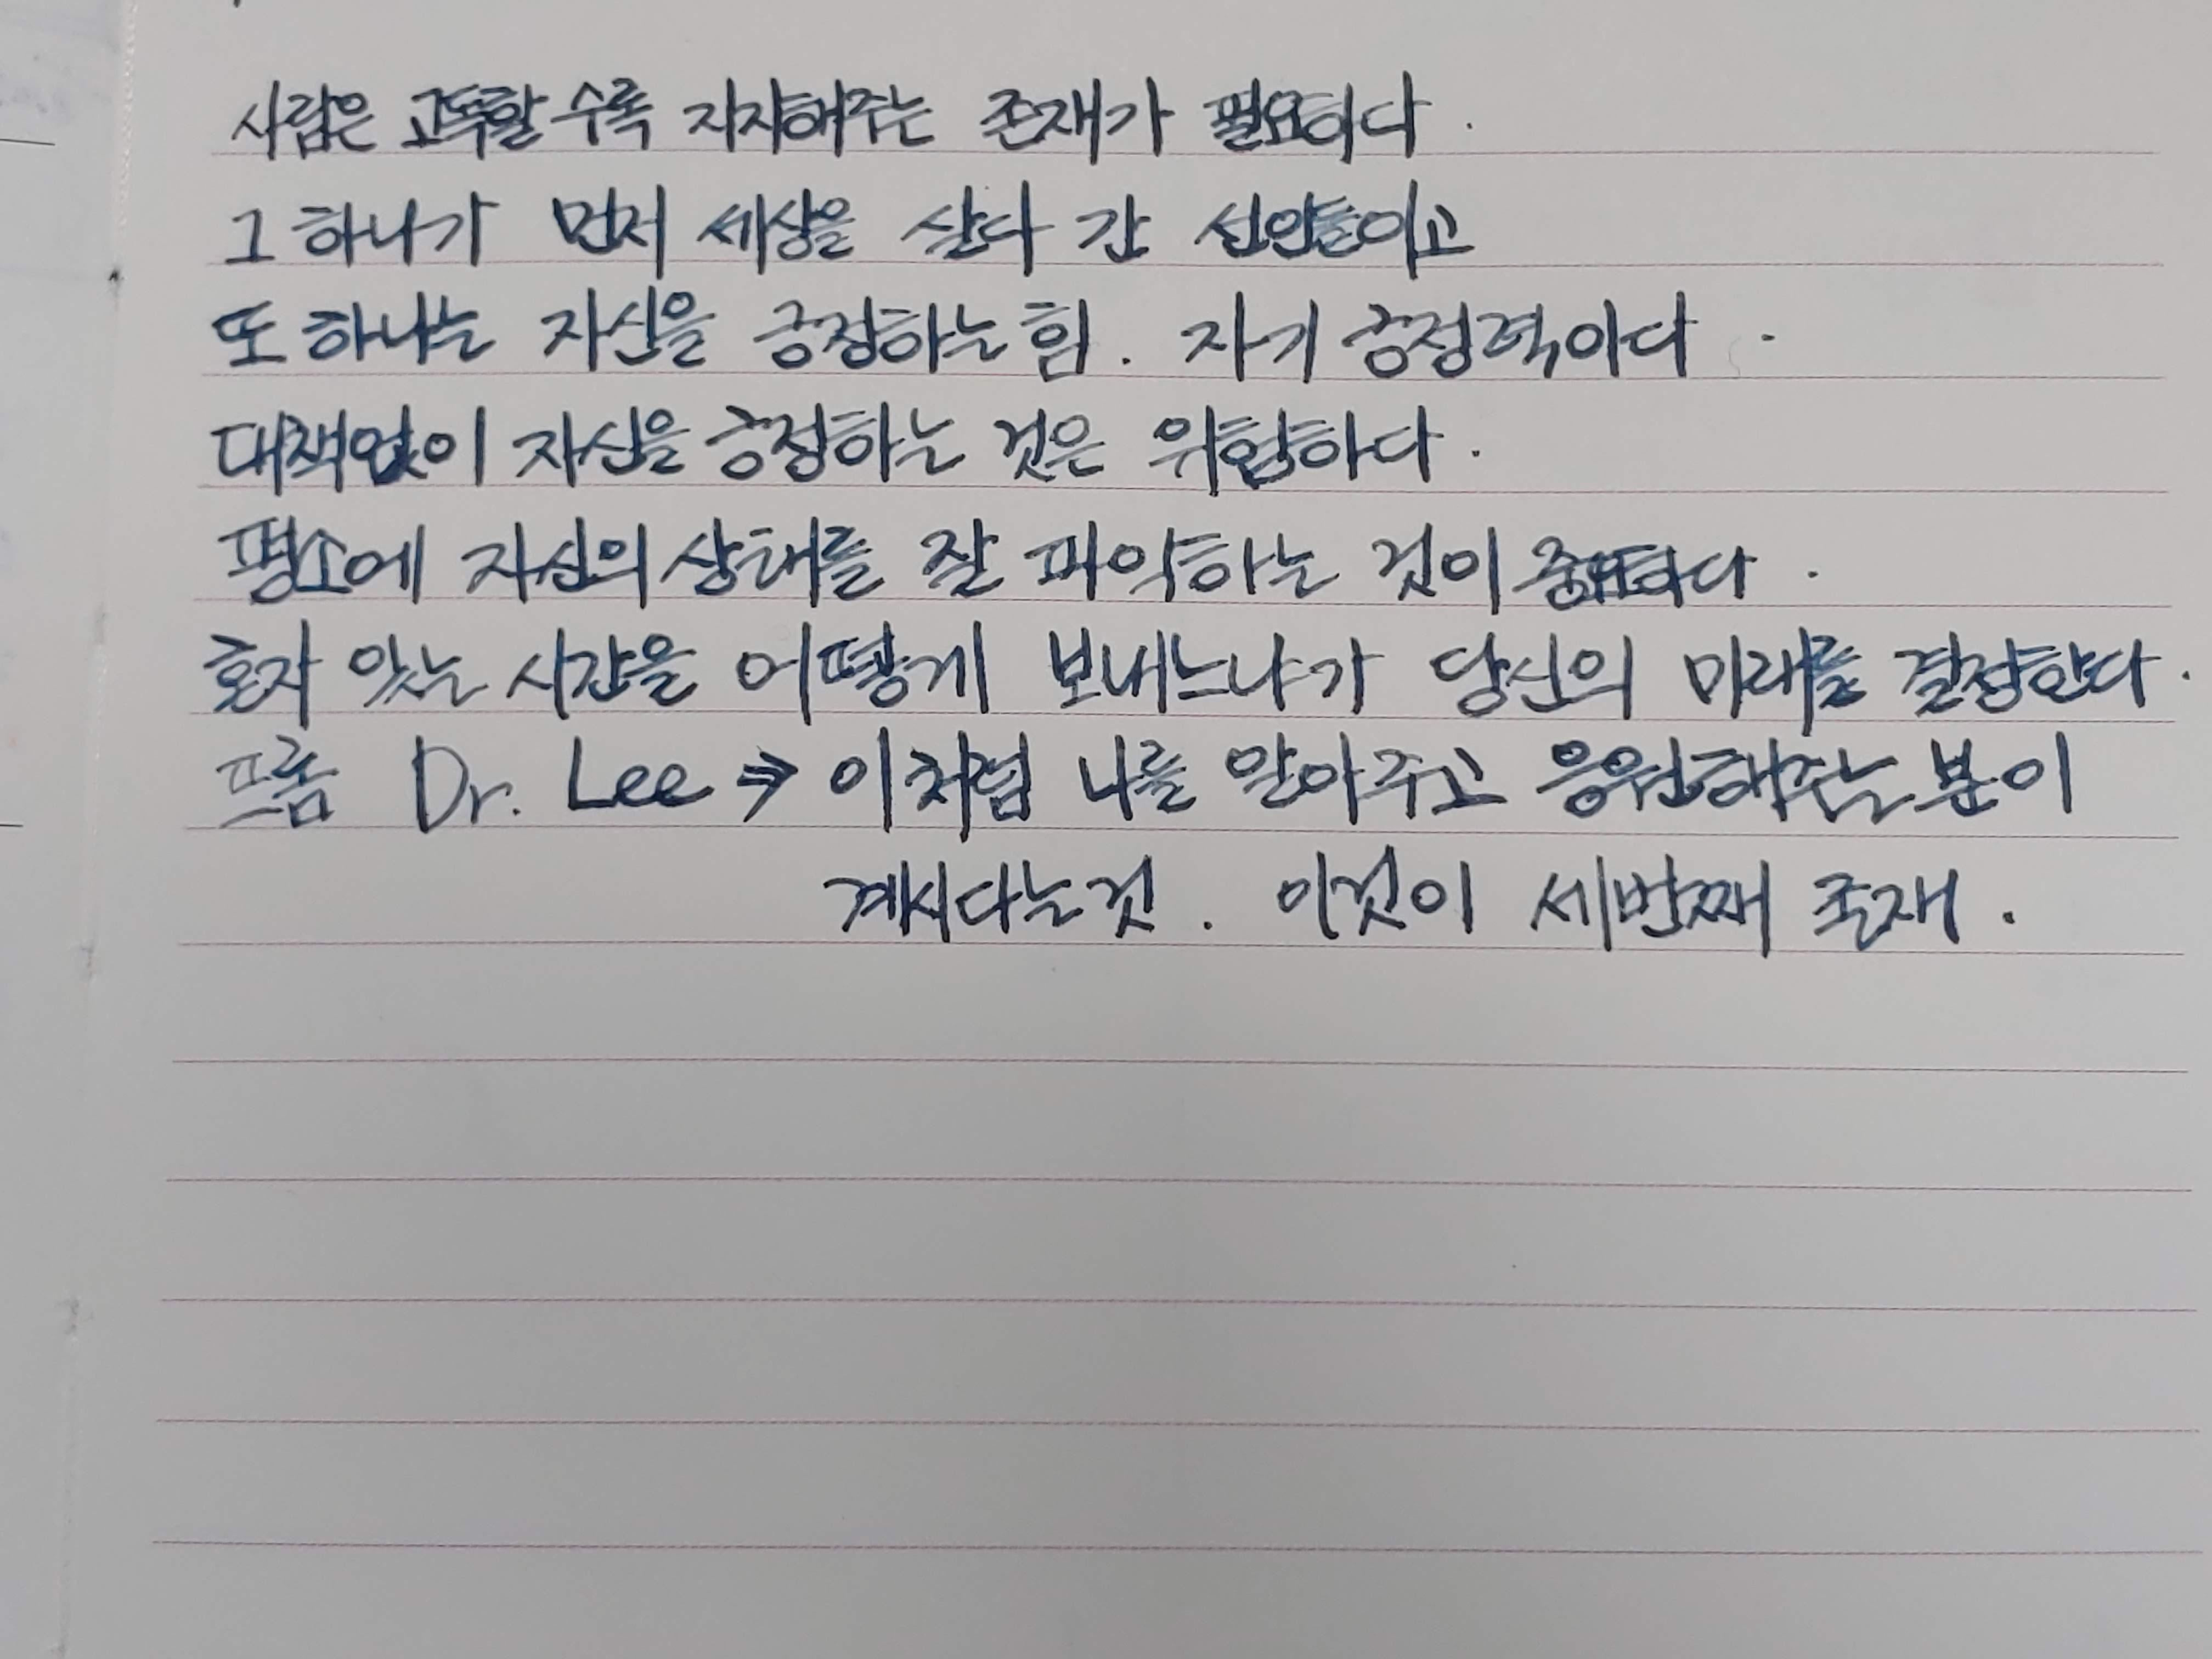 사람은 고독할 수록 지지해주는 존재가 필요하다.
그 하나가 먼저 세상을 살다 간 선인들이고
또 하나는 자신을 긍정하는 힘. 자기 긍정력이다.
대책없이 자신을 긍정하는 것은 위험하다.
평소에 자신의 상태를 잘 파악하는 것이 중요하다.
혼자 있는 시간을 어떻게 보내느냐가 당신의 미래를 결정한다.
프롬 Dr. Lee ⇒ 이처럼 나를 알아주고 응원해주는 분이
계시다는것. 이것이 세번째 존재.